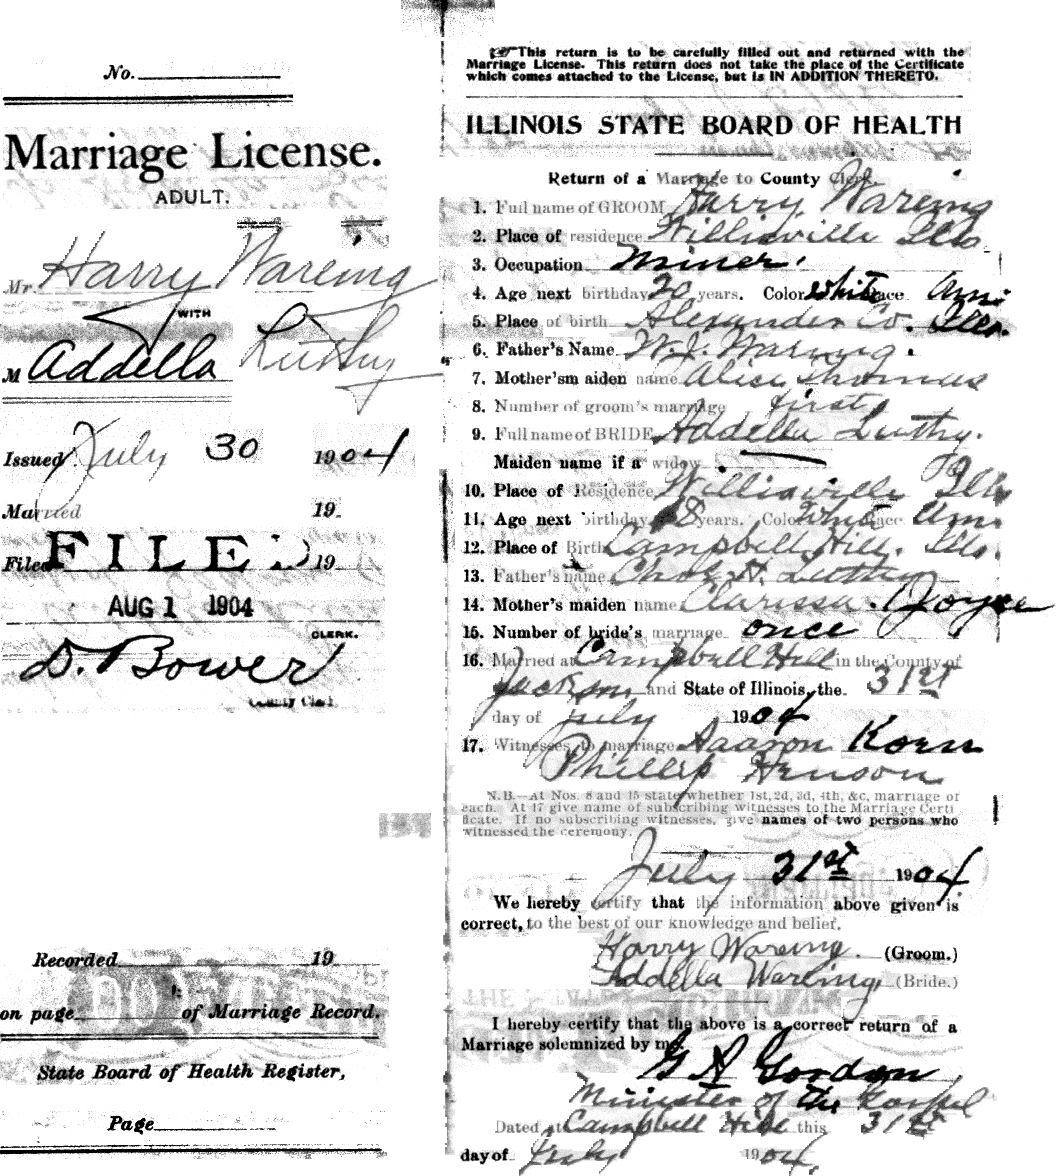 No.
Marriage License.
ADULT.
Mr Harry Wareing
WITH
M Addella Luthy
Issued July 30 1904
Married 19
Filed FILED 19
AUG 1 1904
D. Bower CLERK.
County Clerk
Recorded 19
on page of Marriage Record.
State Board of Health Register,
Page
This return is to be carefully filled out and returned with the
Marriage License. This return does not take the place of the Certificate
which comes attached to the License, but is IN ADDITION THERETO.
ILLINOIS STATE BOARD OF HEALTH
Return of a Marriage to County Clerk
1. Full name of GROOM Harry Wareing
2. Place of residence Willisville Ills
3. Occupation Miner
4. Age next birthday 20 years. Color White race Am
5. Place of birth Alexander Co. Ills.
6. Father's Name W. J. Wareing.
7. Mother's maiden name Alice Thomas
8. Number of groom's marriage first
9. Full name of BRIDE Addella Luthy.
Maiden name if a widow
10. Place of Residence Willisville Ills
11. Age next birthday 18 years. Color White race Am.
12. Place of Birth Campbell Hill. Ills.
13. Father's name Chas H. Luthy
14. Mother's maiden name Clarissa Joyce
15. Number of bride's marriage once
16. Married at Campbell Hill in the County of
Jackson and State of Illinois, the 31st
day of July 1904
17. Witnesses to marriage Aaaron Korn
Phillip Henson
N.B.—At Nos. 8 and 15 state whether 1st, 2d, 3d, 4th, &c, marriage of
each. At 17 give name of subscribing witnesses to the Marriage Certi
ficate. If no subscribing witnesses, give names of two persons who
witnessed the ceremony.
July 31st 1904
We hereby certify that the information above given is
correct, to the best of our knowledge and belief.
Harry Wareing. (Groom.)
Addella Wareing, (Bride.)
I hereby certify that the above is a correct return of a
Marriage solemnized by me.
G A Gordon
Minister of the Gospel
Dated at Campbell Hill this 31st
day of July 1904.